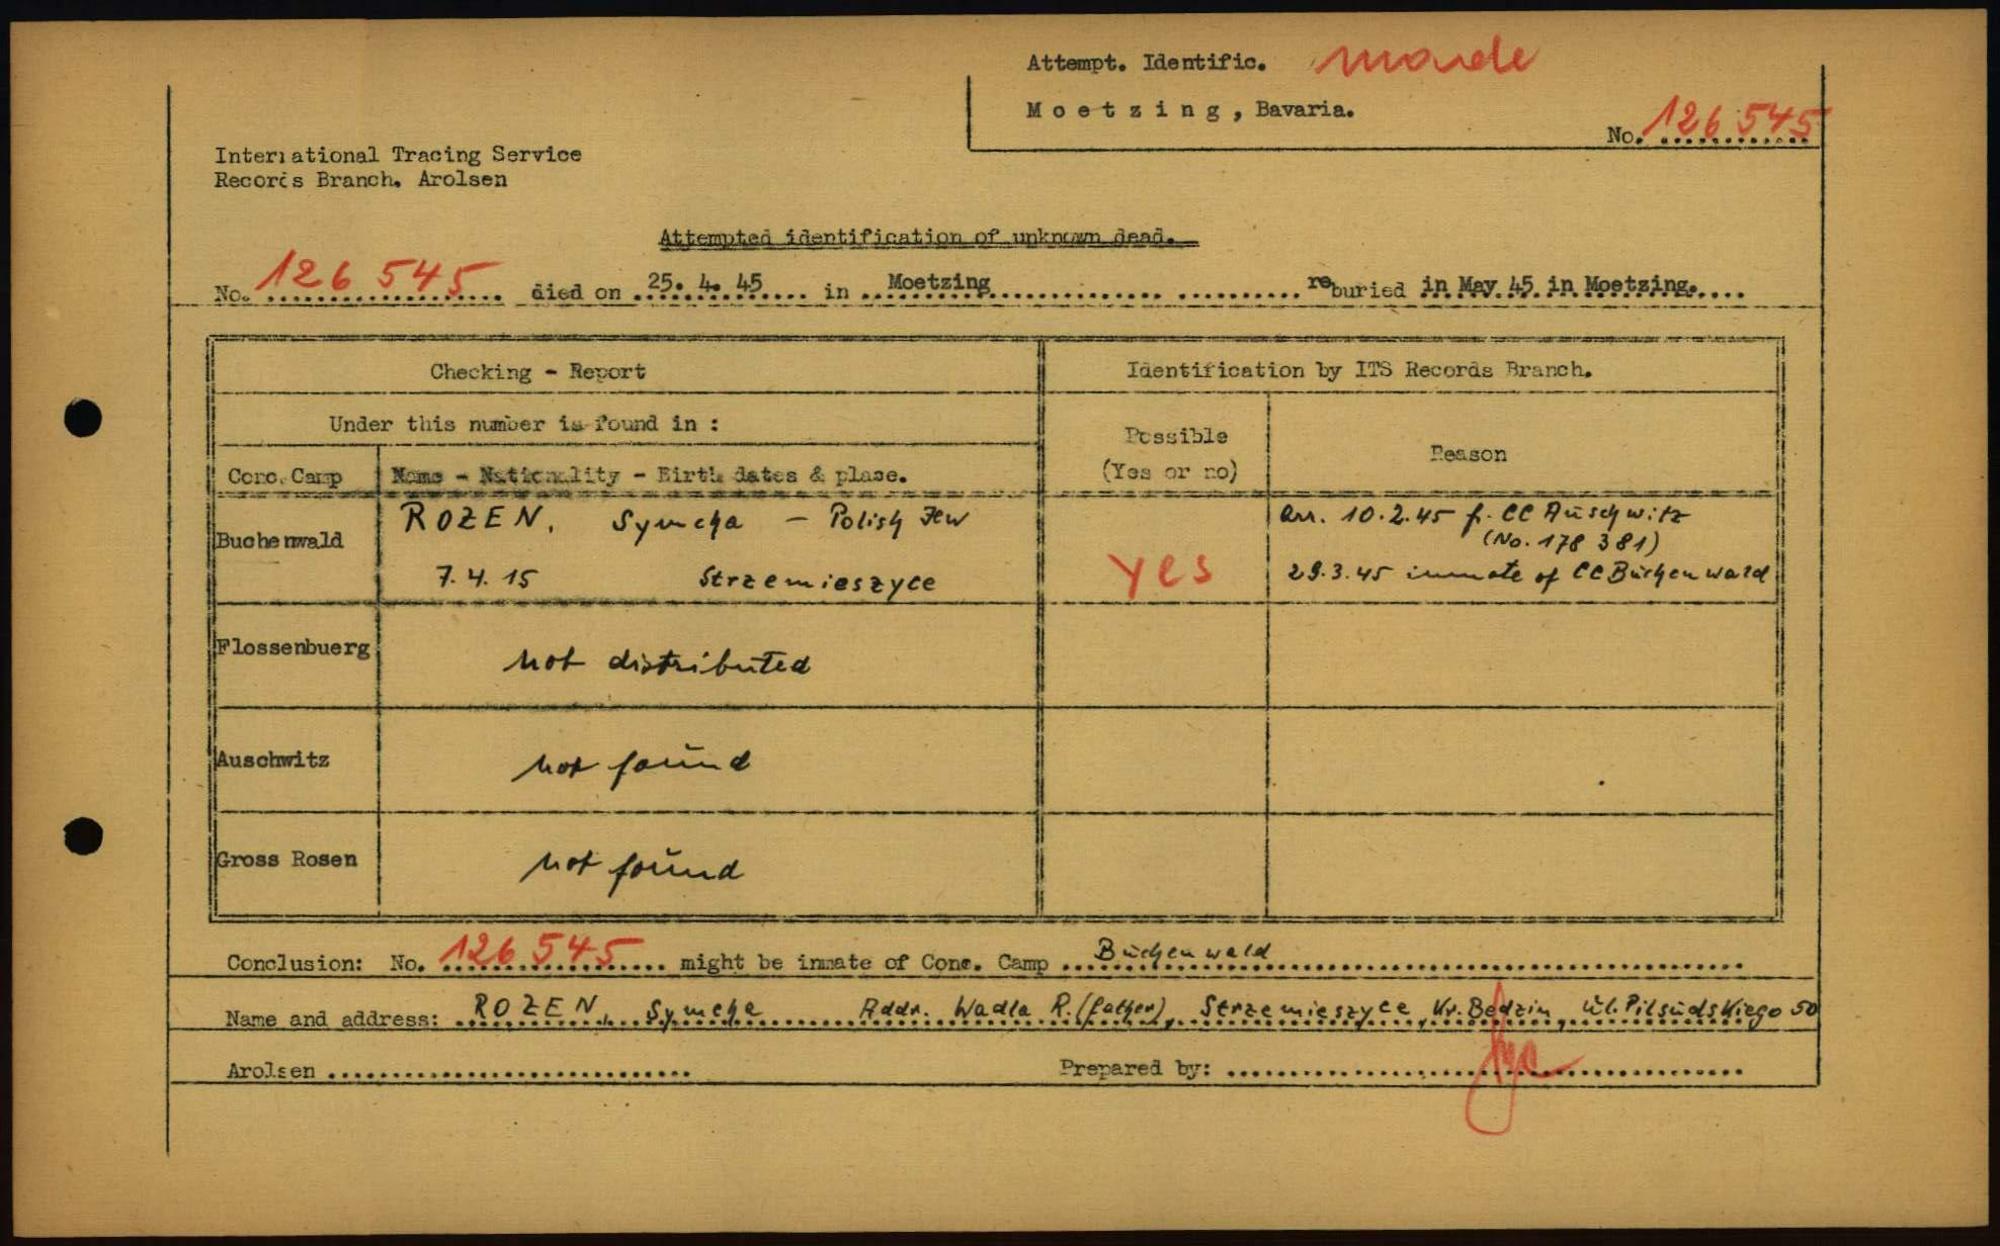 Attempt. Identific. made
Moetzing, Bavaria.
No. 126 545
International Tracing Service
Records Branch. Arolsen
Attempted identification of unknown dead.
No. 126 545 died on 25. 4. 45 in Moetzing reburied in May 45 in Moetzing.
Checking - Report
Identification by ITS Records Branch.
Under this number is found in :
Possible
(Yes or no)
Reason
Conc. Camp Name - Nationality - Birth dates & place.
Buchenwald
ROZEN, Symcha - Polish Jew
7.4.15 Strzemieszyce
yes
arr. 10.2.45 f. CC Auschwitz
(No. 178 381)
29.3.45 inmate of CC Buchenwald
Flossenbuerg not distributed
Auschwitz not found
Gross Rosen not found
Conclusion: No. 126 545 might be inmate of Conc. Camp Buchenwald
Name and address: ROZEN, Symcha Addr. Wadla R. (father), Strzemieszyce, Kr. Bedzin, ul. Pilsudskiego 50
Arolsen
Prepared by: